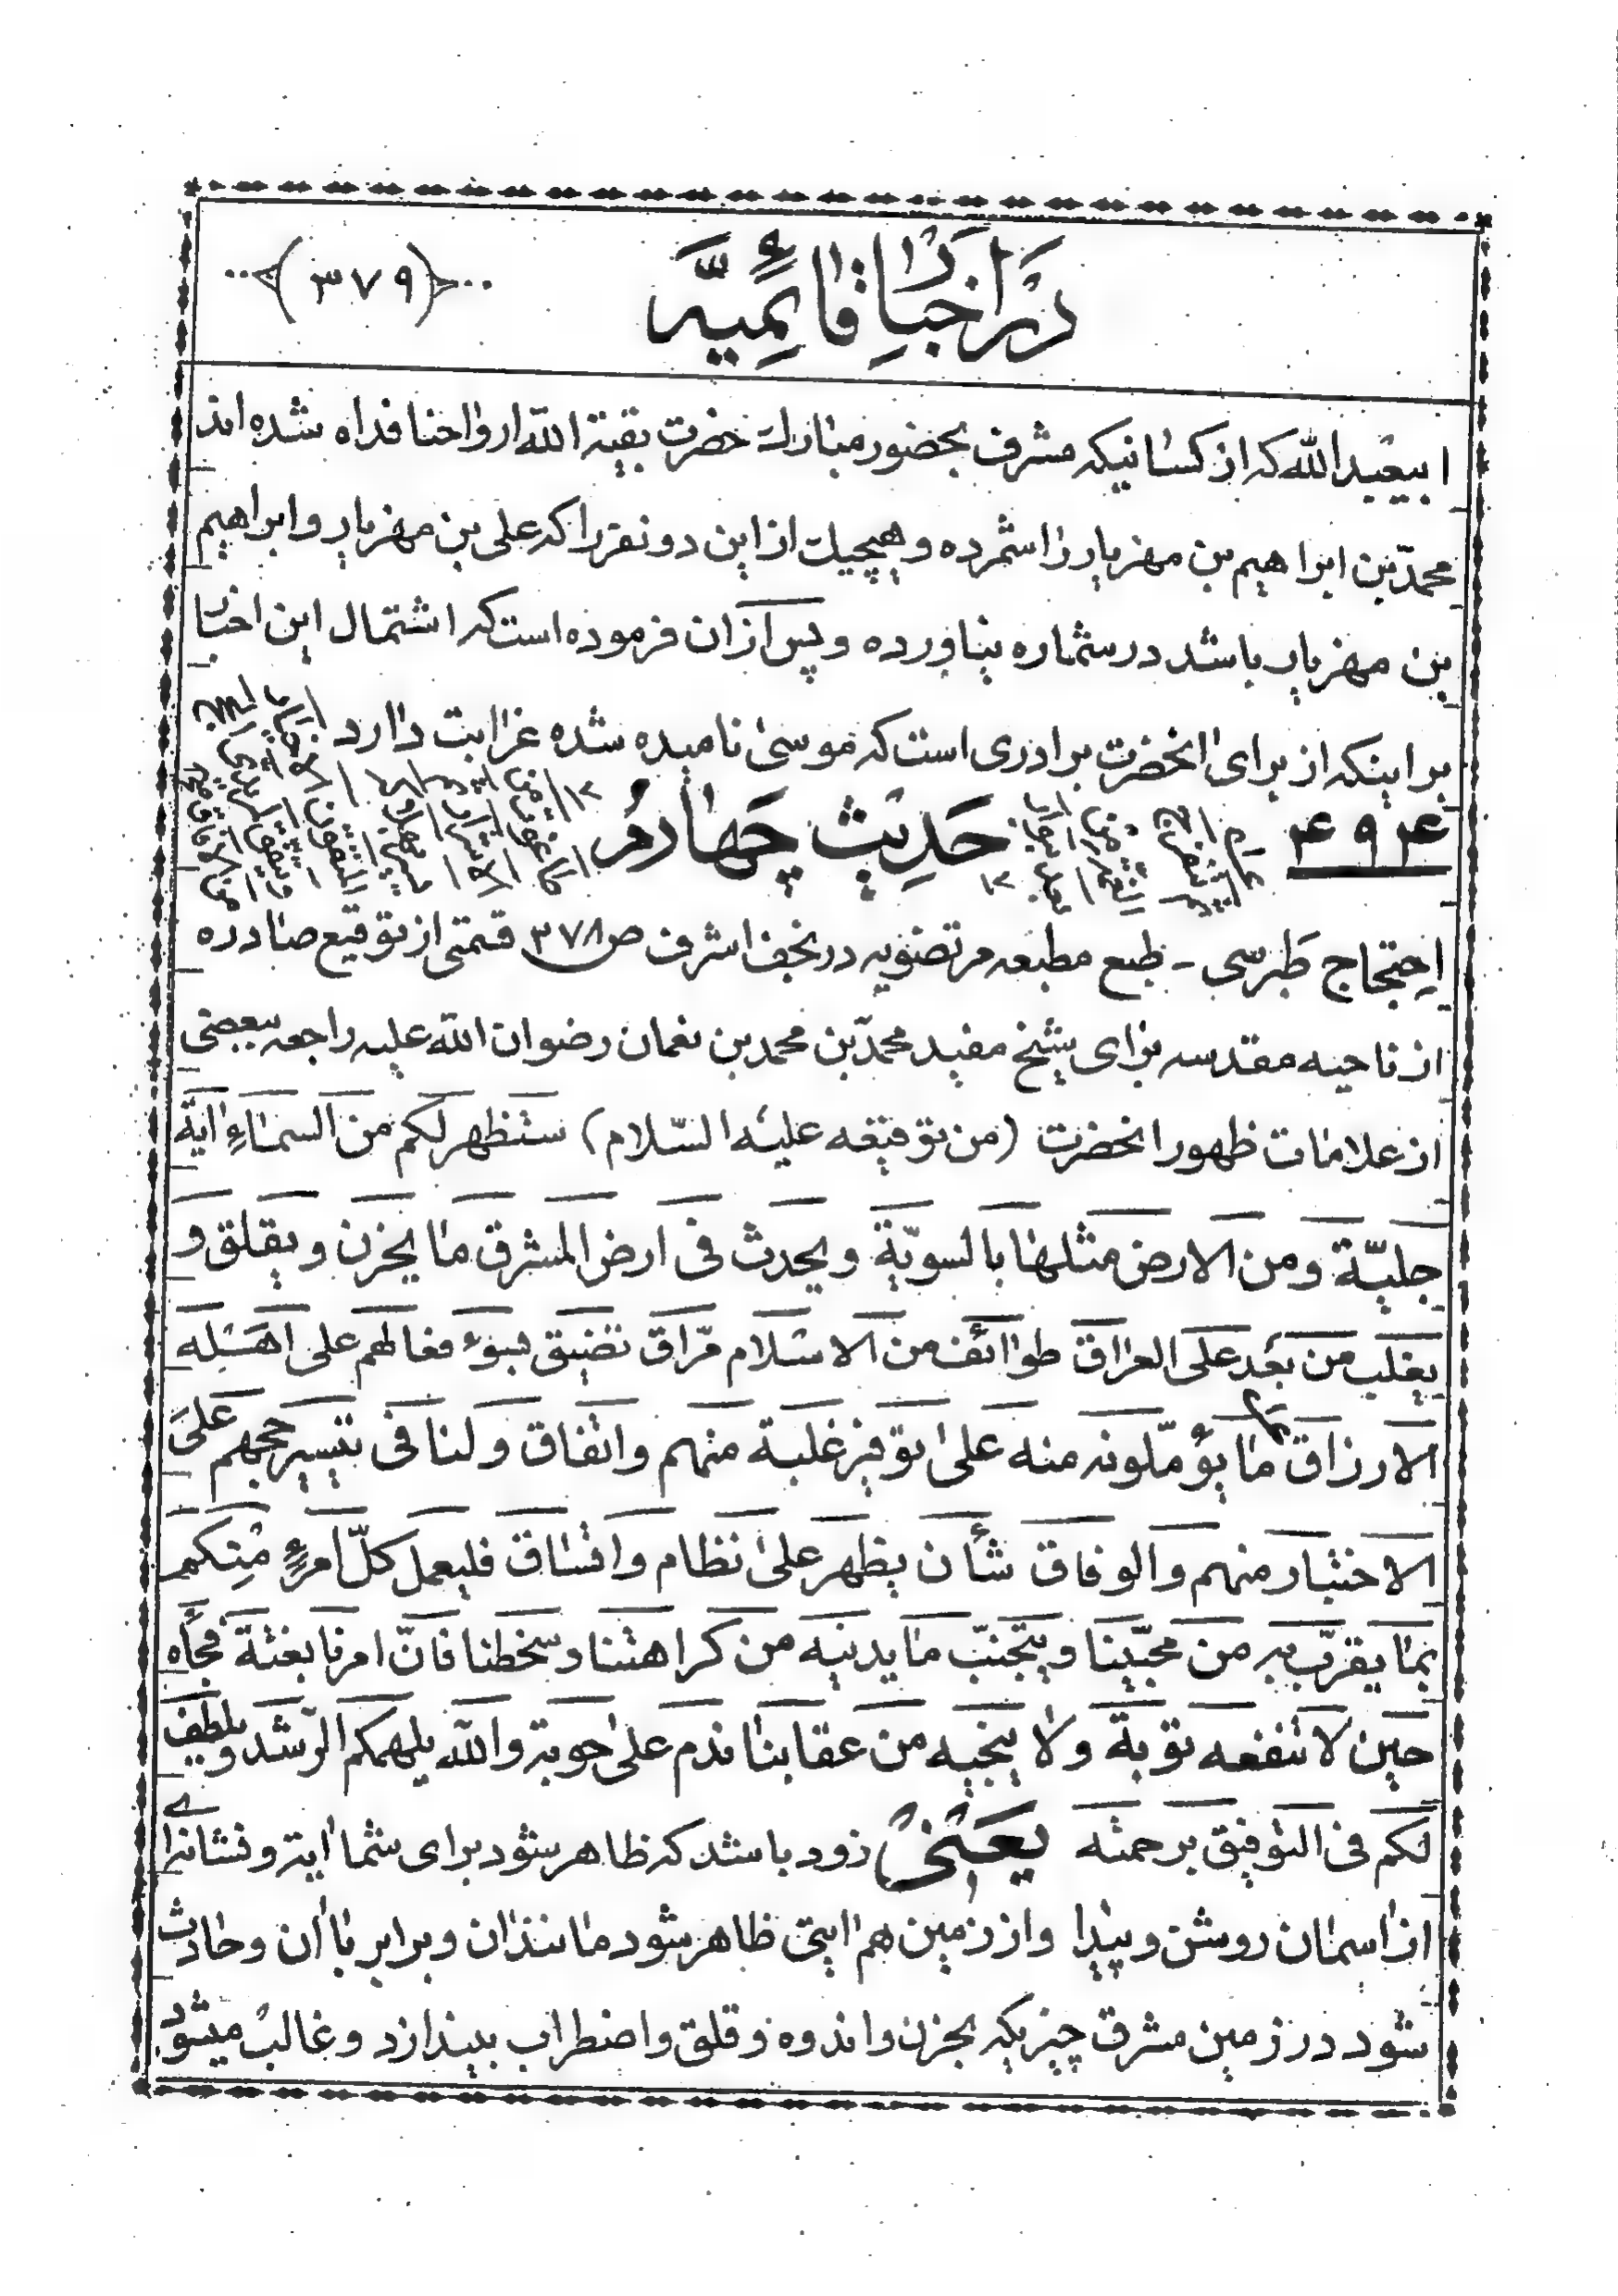 در اخبار قائمیّه
(۳۷۹)
ابیعبد الله که از کسانیکه مشرف بحضور مبارك حضرت بقیة الله ارواحنا فداه شده اند
محمدّ بن ابراهیم بن مهزیار را شمرده و هیچیك از این دو نفر را که علی بن مهزیار و ابراهیم
بن مهزیار باشد در شماره نیاورده و پس از ان فرموده است که اشتمال این اخبار
بر اینکه از برای انحضرت برادری است که موسی نامیده شده غرابت دارد
۴۹۴ حَدیث چَهارم
اِحتجاج طَبرسی - طبع مطبعه مرتضویه در نجف اشرف ص ۳۷۸ قمتی از توقیع صادره
از ناحیه مقدسه برای شیخ مفید محمدّ بن محمد بن نعمان رضوان الله علیه راجعه ببعضی
از علامات ظهور انحضرت (من توقیعه علیه السّلام) ستظهر لکم من السماءِ ایة
جلیّة و من الارض مثلها بالسویّة و یحدث فی ارض المشرق ما یحزن و یقلق و
یغلب من بعد علی العراق طوائف من الاسلام مرّاق تضیق بسوء فعالهم علی اهله
الارزاق ما یؤمّلونه منه علی توفیر غلبة منهم و اتفاق و لنا فی تیسیر حجهم علی
الاختیار منهم و الوفاق شأن یظهر علی نظام و اتساق فلیعمل کلّ امرءٍ منکم
بما یقرّب به من محبّتنا و یتجنبّ ما یدنیه من کراهتنا و سخطنا فانّ امرنا بغتة فجأه
حین لا تنفعه توبة و لا ینجیه من عقابنا ندم علی حوبة و الله یلهمکم الرّشد و یلطف
لکم فی التوفیق برحمته یعنی زود باشد که ظاهر شود برای شما ایة و نشانۀ
از اسمان روشن و پیدا و از زمین هم ایتی ظاهر شود مانند ان و برابر با ان و حادث
شود در زمین مشرق چیزیکه بحزن و اندوه و قلق و اضطراب بیندازد و غالب میشود